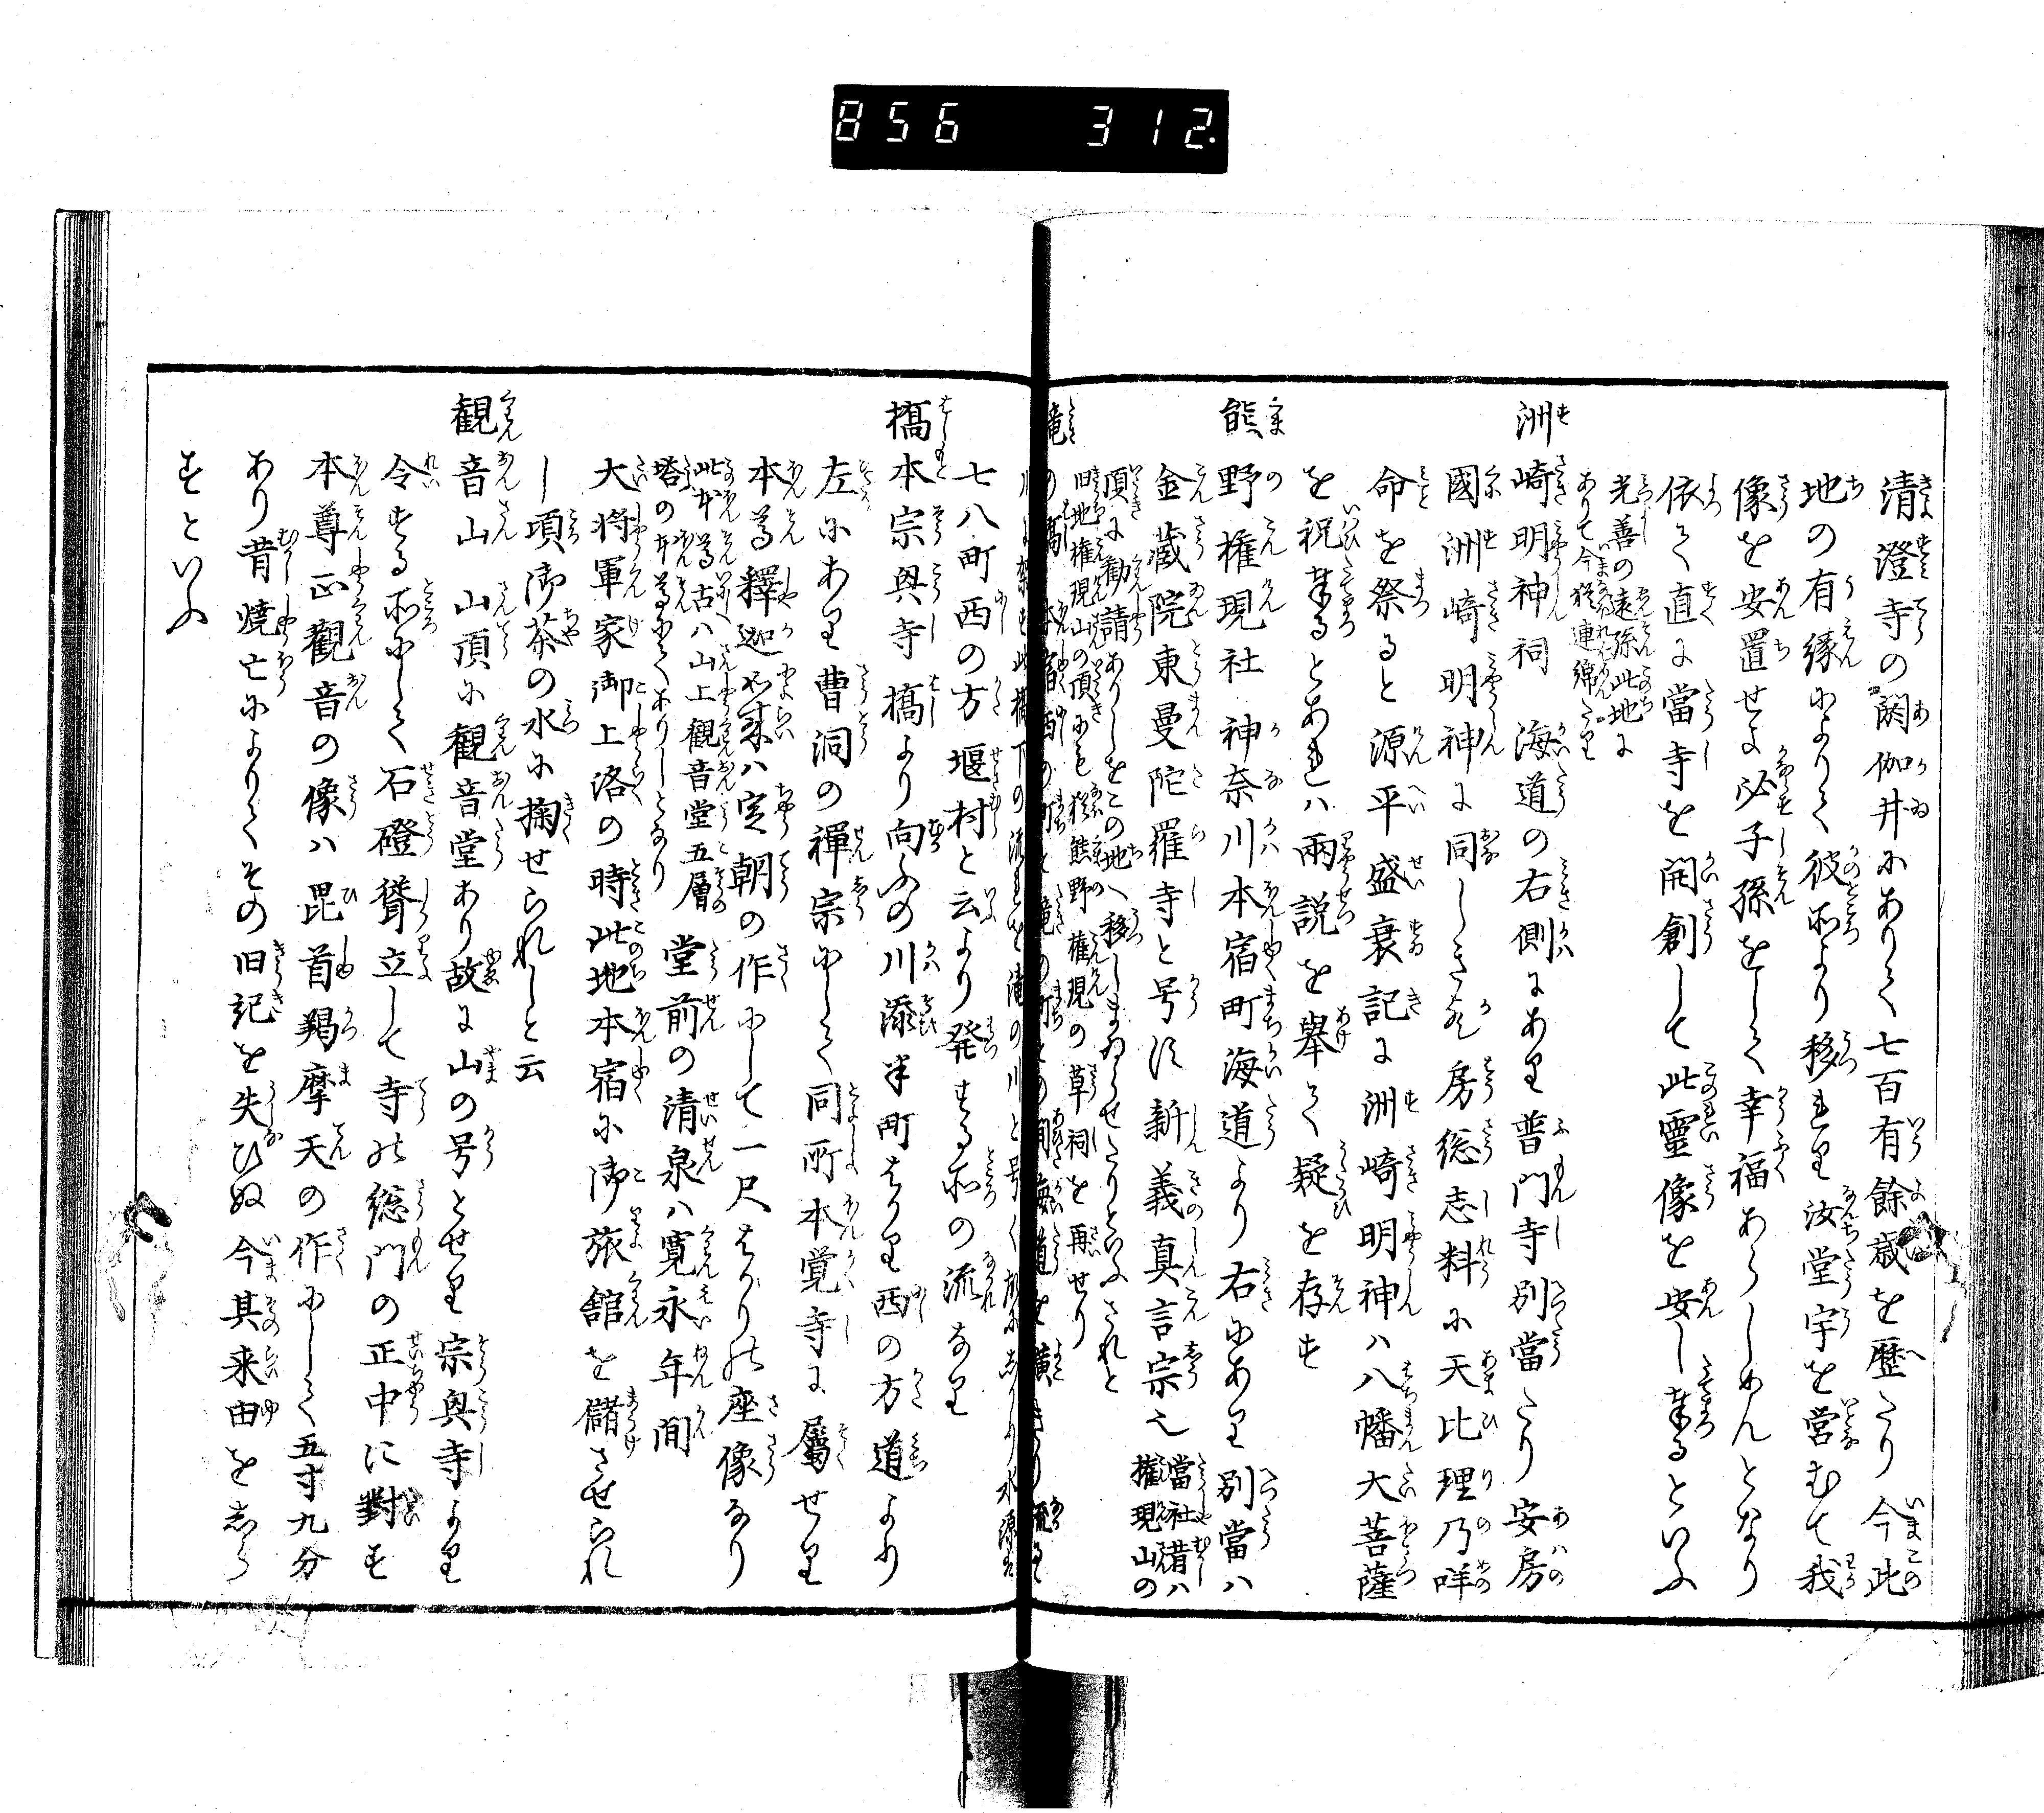 856 312.
清澄寺の閼伽井にありて七百有餘歳を歴たり今此
地の有縁によりて彼所より移れり汝堂宇を営むて我
像を安置せよ必子孫をして幸福あらしめんとなり
依て直に當寺を開創して此靈像を安し奉るといふ
光善の遠孫此地に
ありて今猶連綿たり
洲崎明神祠 海道の右側にあり普門寺別當たり安房
國洲崎明神に同しき歟房総志料に天比理乃咩
命を祭ると源平盛衰記に洲崎明神ハ八幡大菩薩
を祝奉るとあれハ兩説を舉て疑を存す
熊野権現社 神奈川本宿町海道より右にあり別當ハ
金藏院東曼陀羅寺と号す新義真言宗也 當社昔ハ
権現山の
頂に勧請ありしをこの地へ移しまゐらせたりといふされと
旧地権現山の頂にも猶熊野権現の草祠を再せり
滝の橋 本宿西の町と滝の町との間海道を横きり流るゝ
川に架す此橋下の流れを滝の川と号く
七八町西の方堰村と云より発する所の流なり
橋本宗興寺 橋より向ふの川添半町はかり西の方道より
左にあり曹洞の禅宗にして同所本覚寺に屬せり
本尊釋迦如来ハ定朝の作にして一尺はかりの座像なり
此本尊古ハ山上観音堂五層
塔の本尊にてありしとなり
堂前の清泉ハ寛永年間
大將軍家御上洛の時此地本宿に御旅舘を儲させられ
し項御茶の水に掬せられしと云
観音山 山頂に観音堂あり故に山の号とせり宗興寺より
令する所にして石磴聳立して寺の総門の正中に對す
本尊正觀音の像ハ毘首羯摩天の作にして五寸九分
あり昔燒亡によりてその旧記を失ひぬ今其来由をしら
すといふ